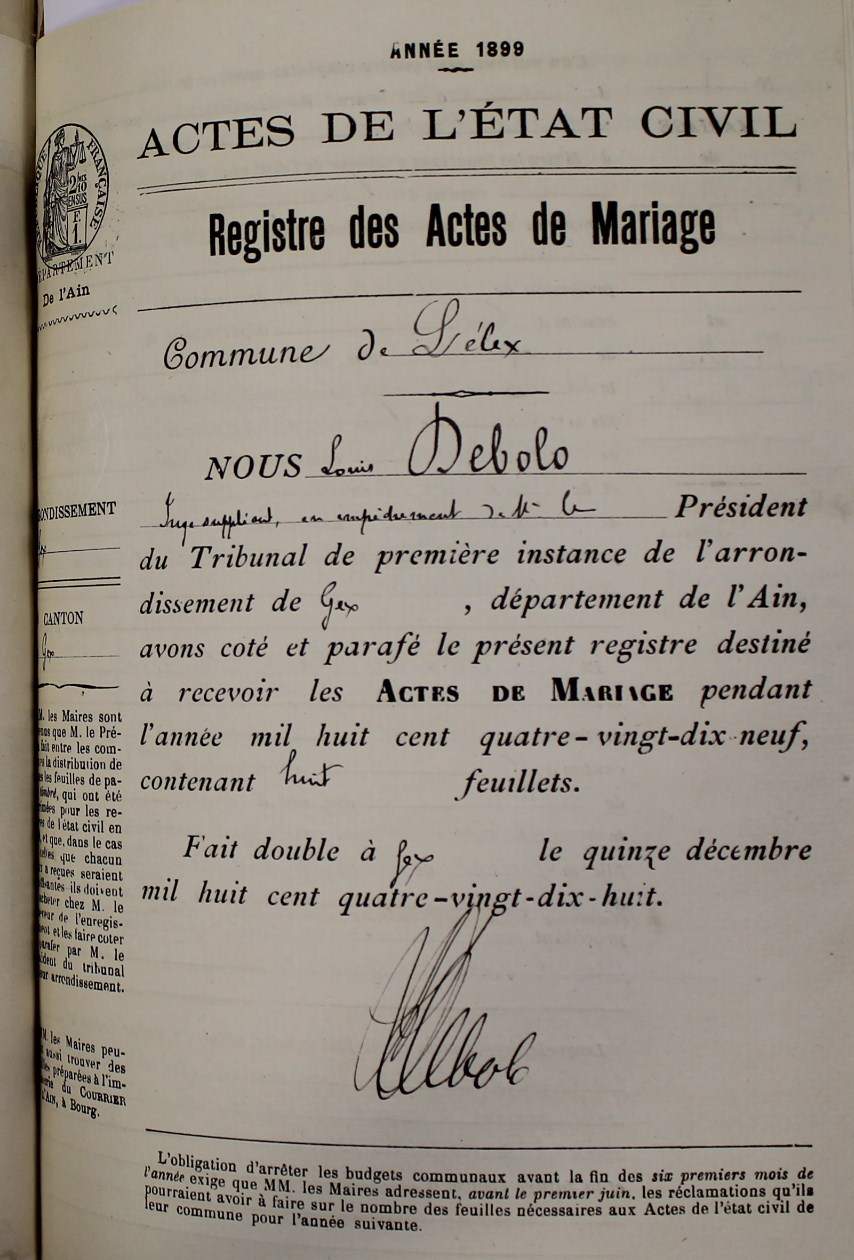 ANNÉE 1899
ACTES DE L'ÉTAT CIVIL
FRANÇAISE
2/10
EN SUS
F.
1.
DÉPARTEMENT
De l'Ain
Registre des Actes de Mariage
Commune de Lélex
NOUS Louis Debolo
Juge suppléant, en empêchement de Mr le Président
du Tribunal de première instance de l'arron-
dissement de Gex , département de l'Ain,
avons coté et parafé le présent registre destiné
à recevoir les ACTES DE MARIAGE pendant
l'année mil huit cent quatre-vingt-dix-neuf,
contenant huit feuillets.
Fait double à Gex le quinze décembre
mil huit cent quatre-vingt-dix-huit.
Debolo
ONDISSEMENT
CANTON
Gex
M. les Maires sont
que M. le Pré-
fait entre les com-
la distribution de
les feuilles de pa-
timbré, qui ont été
pour les re-
de l'état civil en
et que, dans le cas
que chacun
a reçues seraient
ils doivent
acheter chez M. le
de l'enregis-
et les faire coter
parafer par M. le
du tribunal
arrondissement.
M. les Maires peu-
aussi trouver des
préparées à l'im-
du COURRIER
l'AIN, à Bourg.
L'obligation d'arrêter les budgets communaux avant la fin des six premiers mois de
l'année exige que MM. les Maires adressent, avant le premier juin, les réclamations qu'ils
pourraient avoir à faire sur le nombre des feuilles nécessaires aux Actes de l'état civil de
leur commune pour l'année suivante.